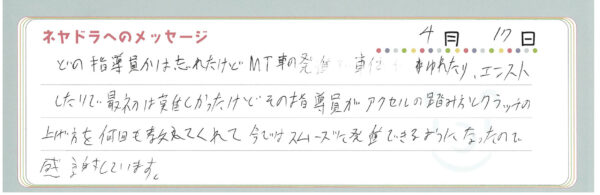 ネヤドラへのメッセージ
4月 17日
どの指導員かは忘れたけどMT車の発進 車体 ゆれたり、エンスト
したりで最初は難しかったけどその指導員がアクセルの踏み方とクラッチの
上げ方を何回も教えてくれて今ではスムーズに発進できるようになったので
感謝しています。